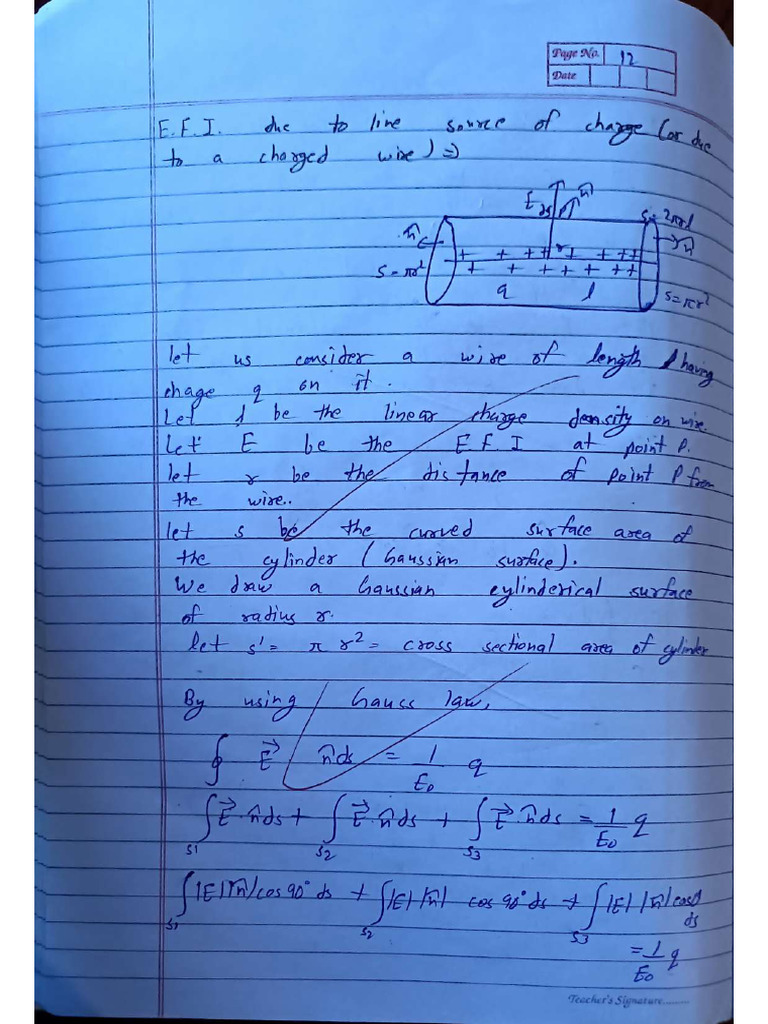 Page No. 12
Date
E.F.I. due to line source of charge (or due
to a charged wire) =)
E ds n̂
S = 2πrl
n̂
n̂
S = πr²
+ + + ++ r + + ++
+ + + + + ++
q l
S = πr²
let us consider a wire of length l having
chage q on it.
Let λ be the linear charge density on wire.
Let E be the E.F.I at point P.
let r be the distance of point P from
the wire..
let s be the curved surface area of
the cylinder (Gaussian surface).
We draw a Gaussian cylinderical surface
of radius r.
let s' = π r² = cross sectional area of cylinder
By using Gauss law,
∮ E⃗ n̂ds = 1/E₀ q
∫S1 E⃗.n̂ds + ∫S2 E⃗.n̂ds + ∫S3 E⃗.n̂ds = 1/E₀ q
∫S1 |E||n̂|cos90° ds + ∫S2 |E||n̂| cos90° ds + ∫S3 |E||n̂|cos0 ds
= 1/E₀ q
Teacher's Signature.........